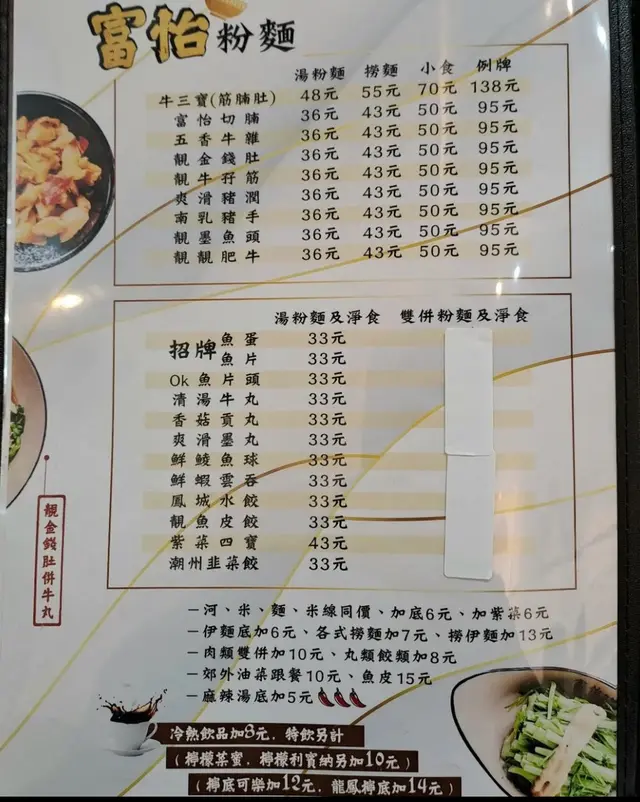 富怡粉麵
湯粉麵 撈麵 小食 例牌
牛三寶(筋腩肚) 48元 55元 70元 138元
富怡切腩 36元 43元 50元 95元
五香牛雜 36元 43元 50元 95元
靚金錢肚 36元 43元 50元 95元
靚牛孖筋 36元 43元 50元 95元
爽滑豬潤 36元 43元 50元 95元
南乳豬手 36元 43元 50元 95元
靚墨魚頭 36元 43元 50元 95元
靚靚肥牛 36元 43元 50元 95元
湯粉麵及淨食 雙併粉麵及淨食
招牌 魚蛋 33元
魚片 33元
Ok魚片頭 33元
清湯牛丸 33元
香菇貢丸 33元
爽滑墨丸 33元
鮮鯪魚球 33元
鮮蝦雲吞 33元
鳳城水餃 33元
靚魚皮餃 33元
紫菜四寶 43元
潮州韭菜餃 33元
靚金錢肚併牛丸
–河、米、麵、米線同價、加底6元、加紫菜6元
–伊麵底加6元、各式撈麵加7元、撈伊麵加13元
–肉類雙併加10元、丸類餃類加8元
–郊外油菜跟餐10元、魚皮15元
–麻辣湯底加5元
冷熱飲品加8元，特飲另計
(檸檬菜蜜，檸檬利賓納另加10元)
(檸底可樂加12元，龍鳳檸底加14元)